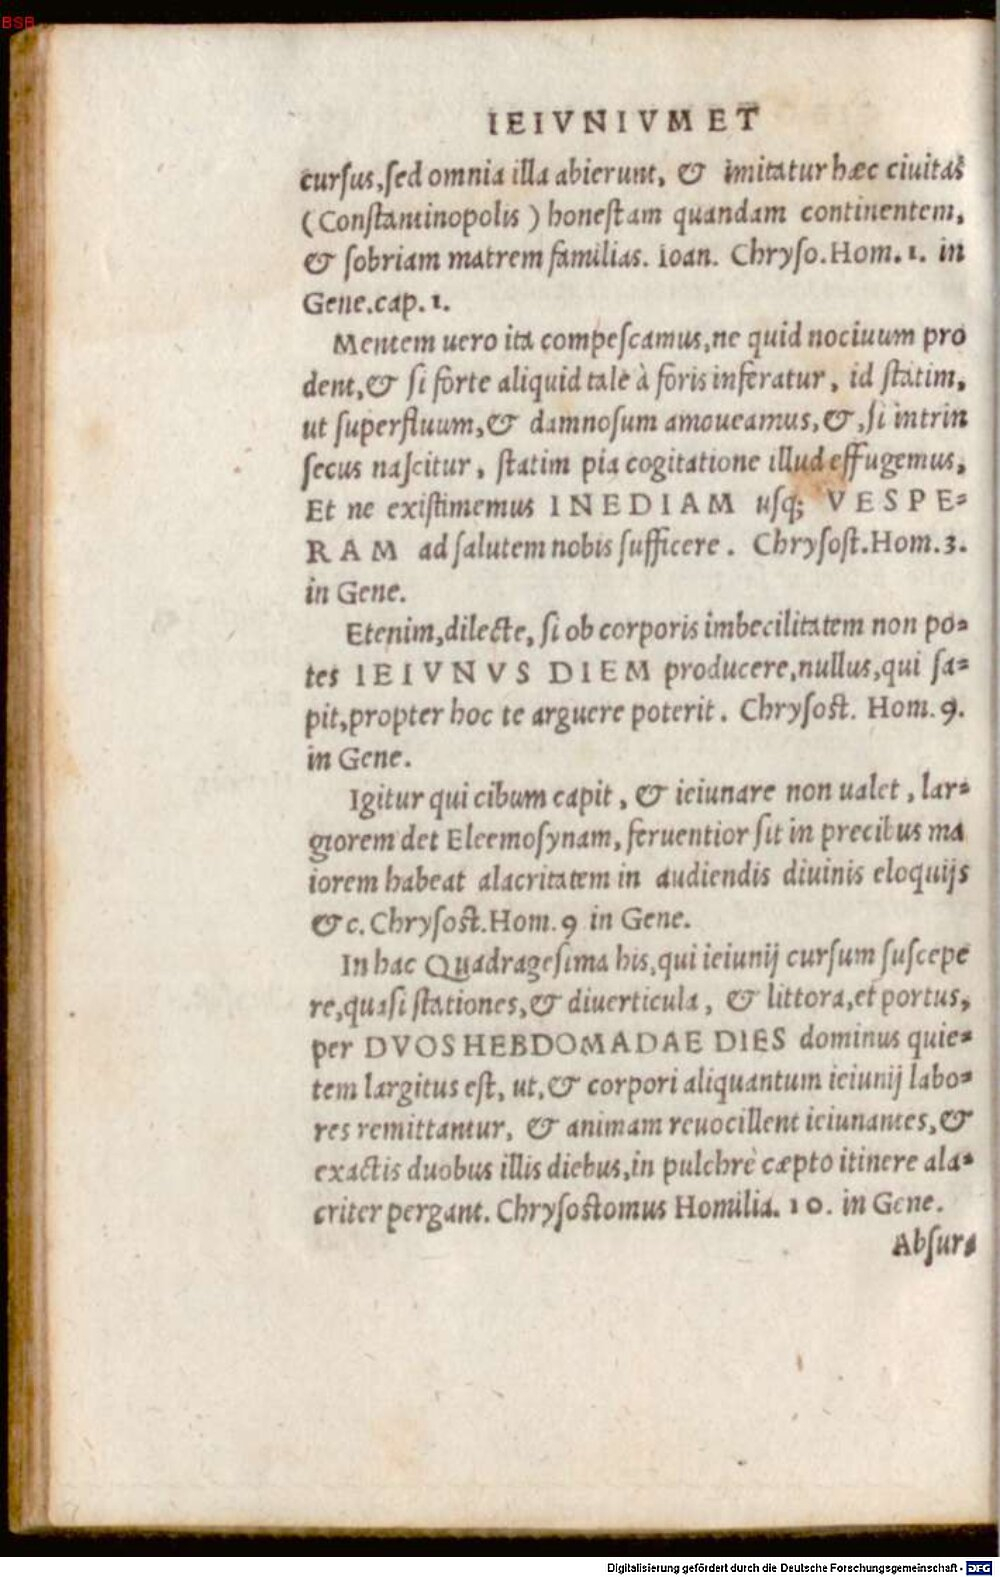 BSB
IEIVNIVM ET
curſus, ſed omnia illa abierunt, & imitatur hæc ciuitas
(Conſtantinopolis) honeſtam quandam continentem,
& ſobriam matrem familias. Ioan. Chryſo. Hom. 1. in
Gene. cap. 1.
Mentem uero ita compeſcamus, ne quid nociuum pro
dent, & ſi forte aliquid tale à foris inferatur, id ſtatim,
ut ſuperfluum, & damnoſum amoueamus, &, ſi intrin
ſecus naſcitur, ſtatim pia cogitatione illud effugemus,
Et ne exiſtimemus INEDIAM uſq; VESPE-
RAM ad ſalutem nobis ſufficere. Chryſoſt. Hom. 3.
in Gene.
Etenim, dilecte, ſi ob corporis imbecilitatem non po-
tes IEIVNVS DIEM producere, nullus, qui ſa-
pit, propter hoc te arguere poterit. Chryſoſt. Hom. 9.
in Gene.
Igitur qui cibum capit, & ieiunare non ualet, lar-
giorem det Eleemoſynam, feruentior ſit in precibus ma
iorem habeat alacritatem in audiendis diuinis eloquijs
& c. Chryſoſt. Hom. 9 in Gene.
In hac Quadrageſima his, qui ieiunij curſum ſuſcepe
re, quaſi ſtationes, & diuerticula, & littora, et portus,
per DVOS HEBDOMADAE DIES dominus quie-
tem largitus eſt, ut, & corpori aliquantum ieiunij labo-
res remittantur, & animam reuocillent ieiunantes, &
exactis duobus illis diebus, in pulchrè cæpto itinere ala-
criter pergant. Chryſoſtomus Homilia. 10. in Gene.
Abſur-
Digitalisierung gefördert durch die Deutsche Forschungsgemeinschaft - DFG